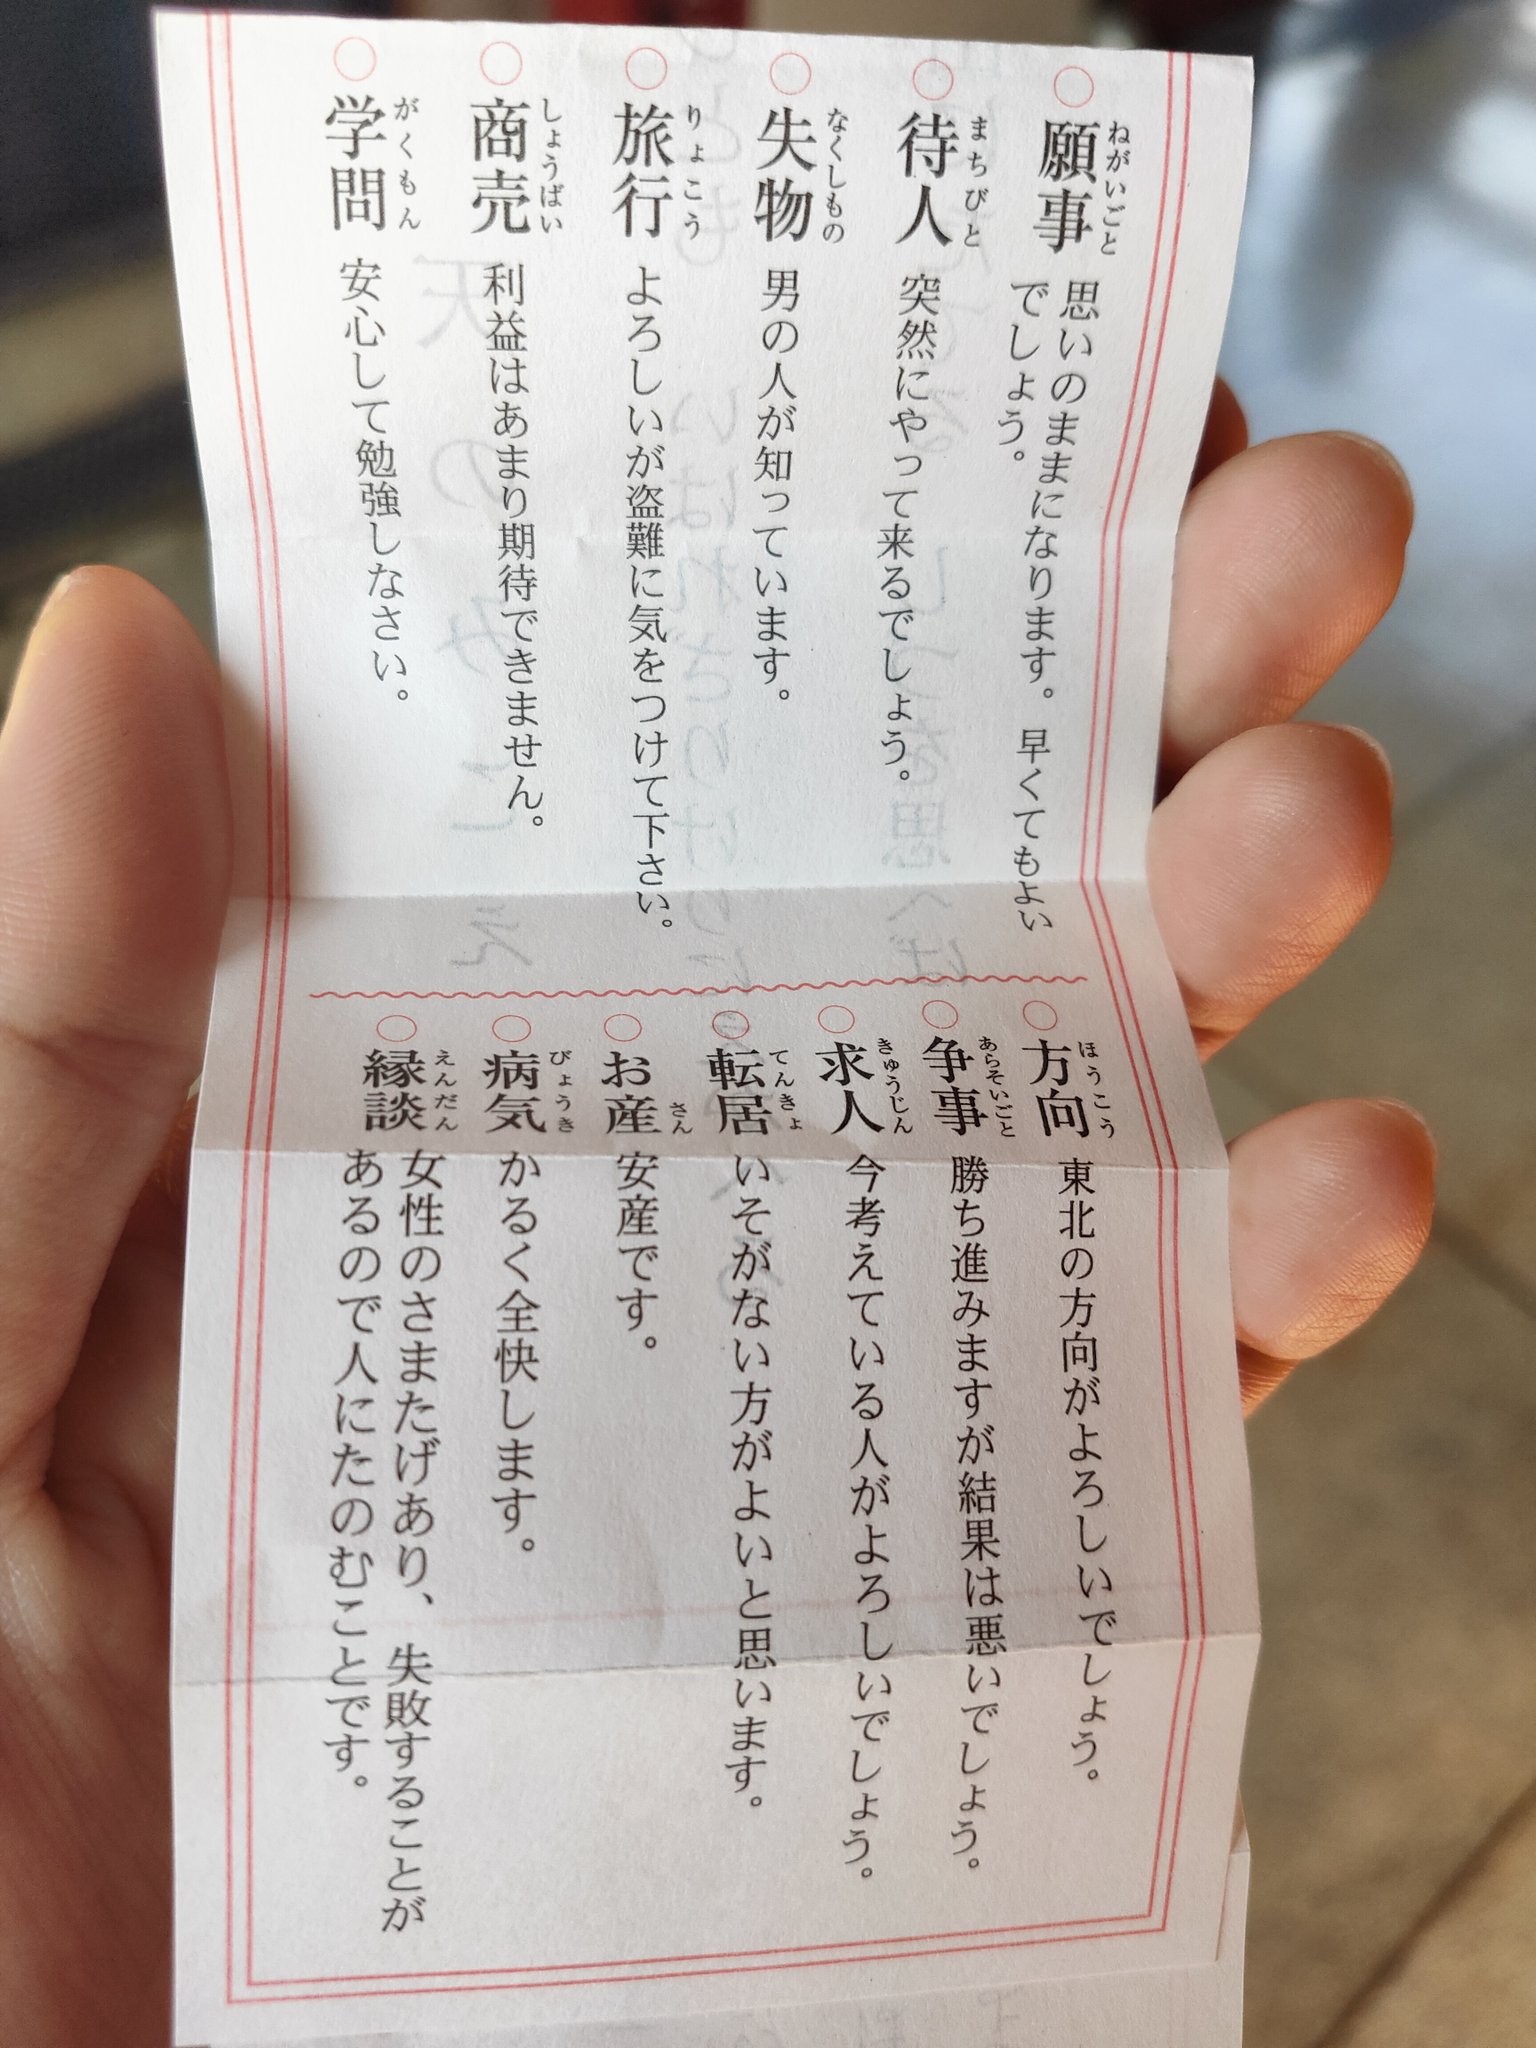 ○願事 思いのままになります。早くてもよい
でしょう。
○待人 突然にやって来るでしょう。
○失物 男の人が知っています。
○旅行 よろしいが盗難に気をつけて下さい。
○商売 利益はあまり期待できません。
○学問 安心して勉強しなさい。
○方向 東北の方向がよろしいでしょう。
○争事 勝ち進みますが結果は悪いでしょう。
○求人 今考えている人がよろしいでしょう。
○転居 いそがない方がよいと思います。
○お産 安産です。
○病気 かるく全快します。
○縁談 女性のさまたげあり、失敗することが
あるので人にたのむことです。
ねがいごと
まちびと
なくしもの
りょこう
しょうばい
がくもん
ほうこう
あらそいごと
きゅうじん
てんきょ
さん
びょうき
えんだん